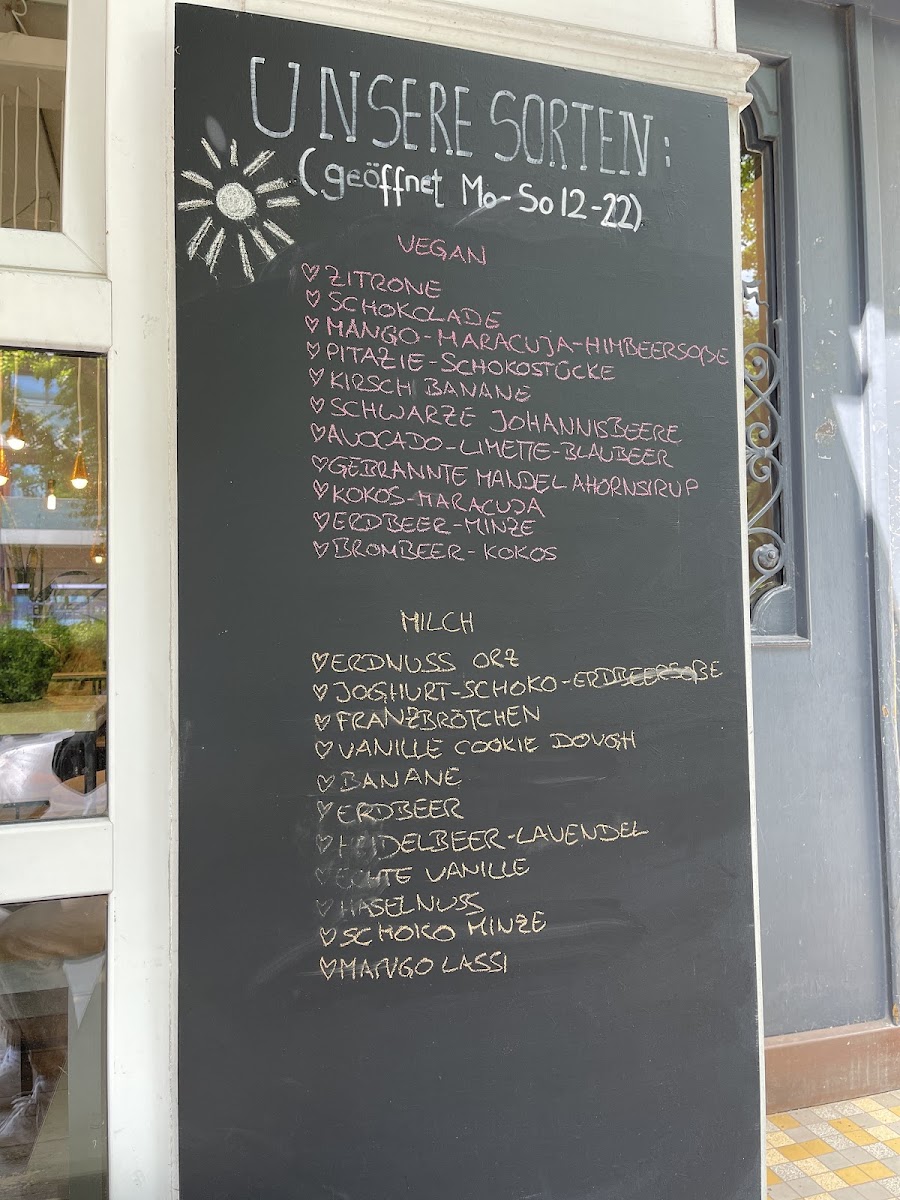 UNSERE SORTEN:
(geöffnet Mo-So 12-22)
VEGAN
♡ ZITRONE
♡ SCHOKOLADE
♡ MANGO-MARACUJA-HIMBEERSOẞE
♡ PITAZIE-SCHOKOSTÜCKE
♡ KIRSCH BANANE
♡ SCHWARZE JOHANNISBEERE
♡ AVOCADO-LIMETTE-BLAUBEER
♡ GEBRANNTE MANDEL AHORNSIRUP
♡ KOKOS-MARACUJA
♡ ERDBEER-MINZE
♡ BROMBEER-KOKOS
MILCH
♡ ERDNUSS ORZ
♡ JOGHURT-SCHOKO-ERDBEERSOẞE
♡ FRANZBRÖTCHEN
♡ VANILLE COOKIE DOUGH
♡ BANANE
♡ ERDBEER
♡ HEIDELBEER-LAVENDEL
♡ ECHTE VANILLE
♡ HASELNUSS
♡ SCHOKO MINZE
♡ MANGO LASSI